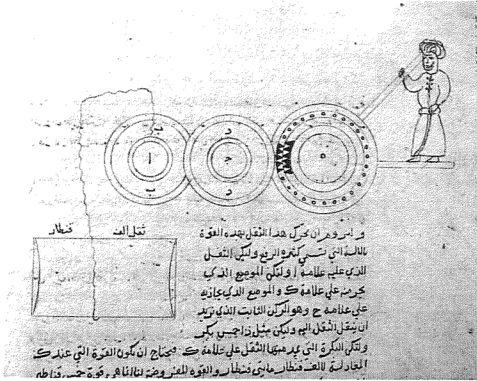 ب د
ا ج ه
ب د
ثقل الف قنطار
ان نحرك هذا الثقل بهذه القوة
بالالة التي تسمى كثيرة الرفع ولتكن الثقل
الذي عليه علامة ا ولتكن الموضع الذي
يجر منه علي علامة ك والموضع الذي يجاذبه
علي علامة ج وهو الركن الثابت الذي نريد
ان ينقل الثقل اليه وليكن مثل بكر
ولتكن البكرة التي منها الثقل علي علامة ك فيحتاج ان تكون القوة التي عند ك
المعادلة لالف قنطار مائتي قنطار والقوة انما هي قوة خمس قناطير